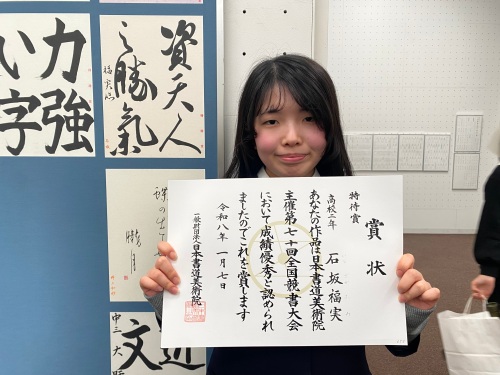 賞状
特待賞
高校二年 石坂福実
あなたの作品は日本書道美術院
主催第七十回全国競書大会
において成績優秀と認められ
ましたのでこれを賞します
令和八年一月七日
一般財団法人日本書道美術院
資天人
之勝氣
福実臨
力強
い字
中三 大
文